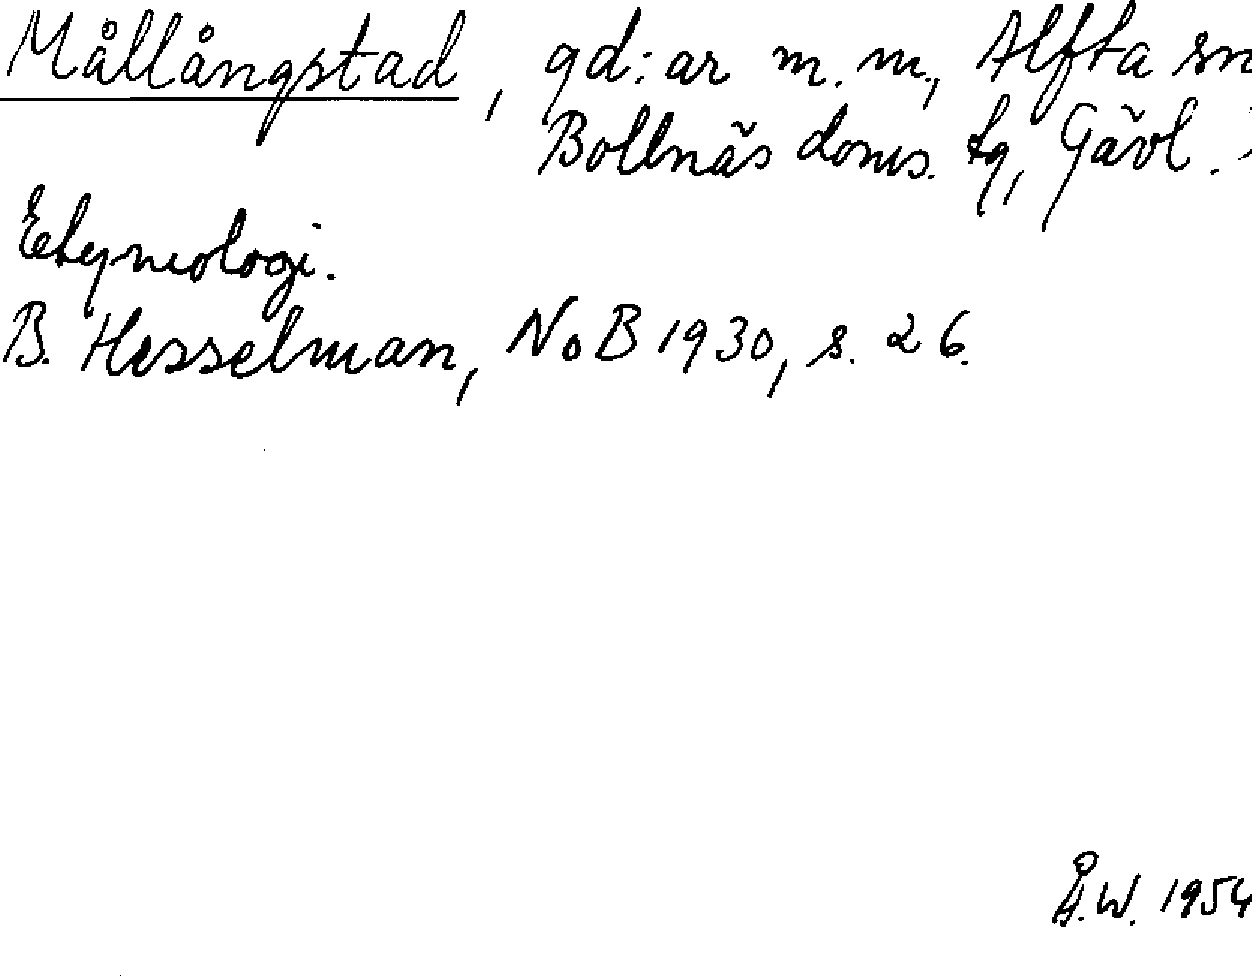 Mållångstad, gd:ar m.m., Alfta sn
Bollnäs doms. tg, Gävl.
Etymologi.
B. Hesselman, NoB 1930, s. 26.
Å.W. 1954